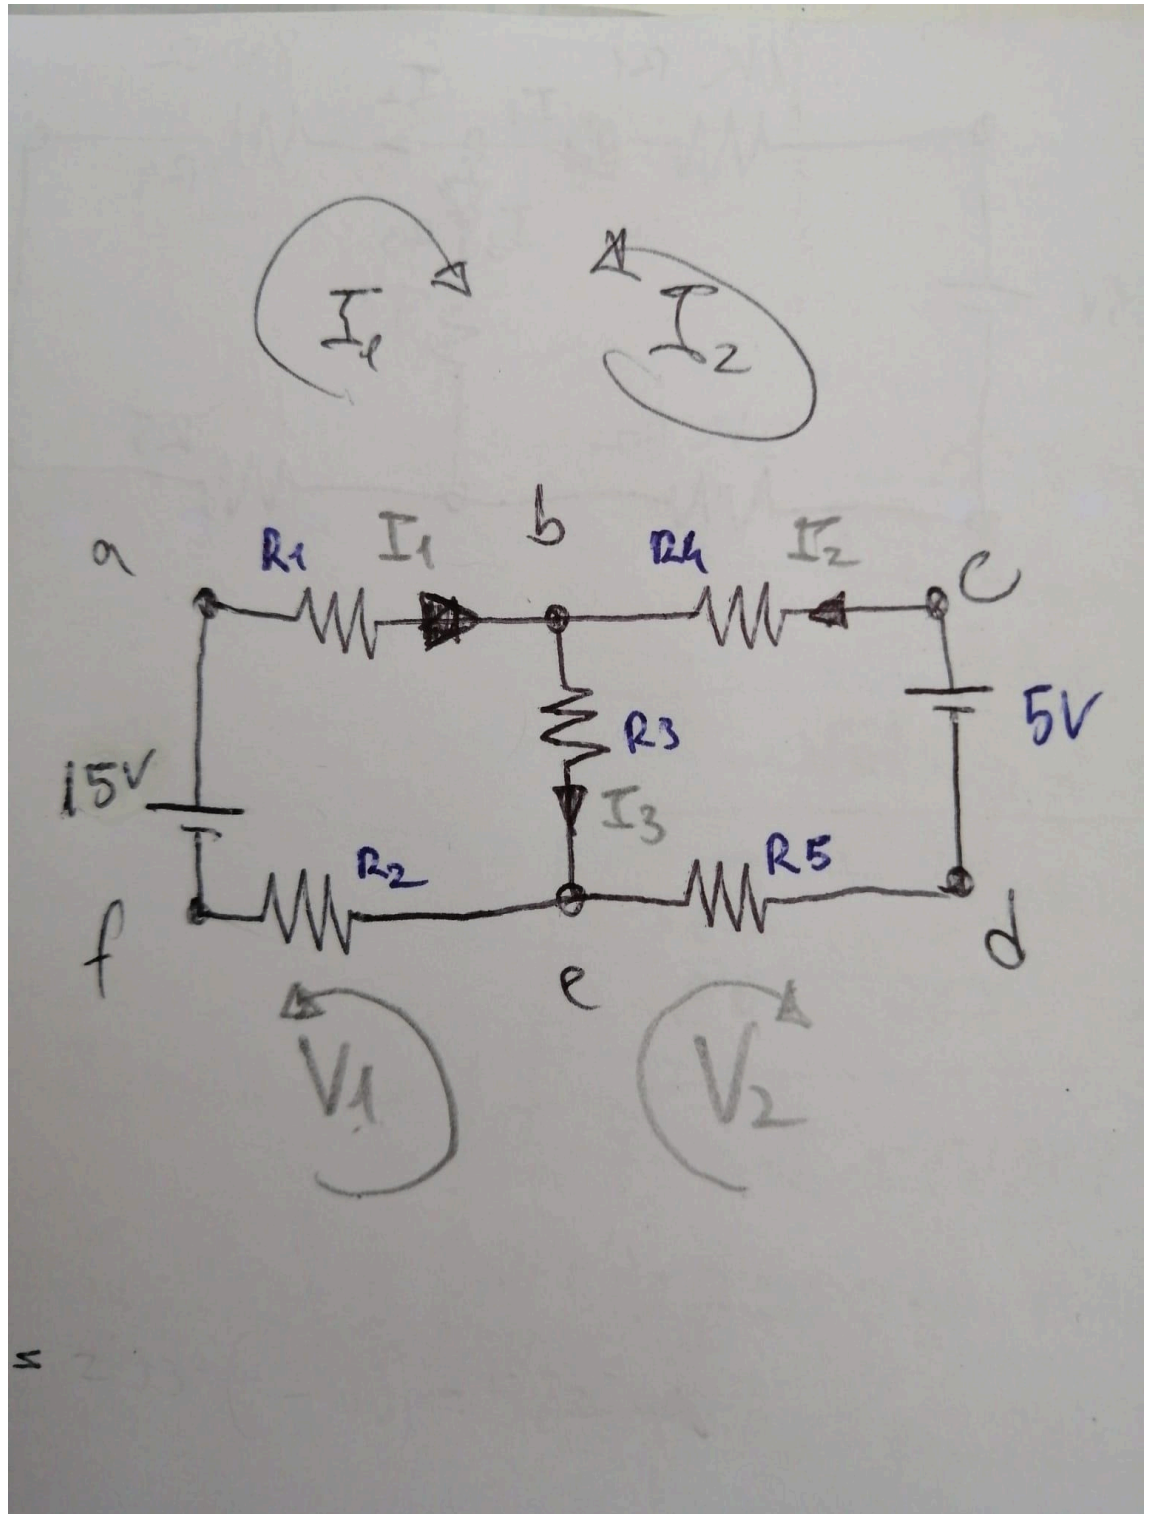 I1
I2
b
a
R1
I1
R4
I2
c
15V
R3
5V
I3
R2
R5
f
e
d
V1
V2